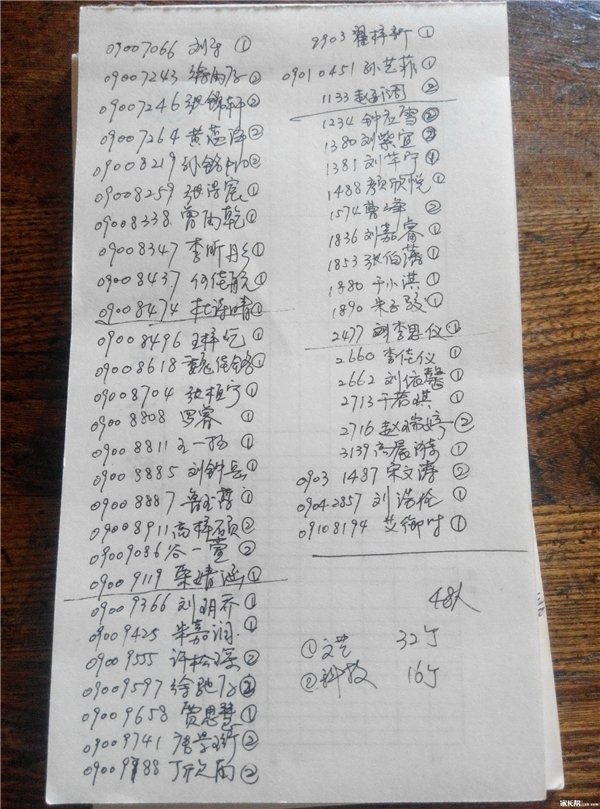 09007066 刘宇①
09007243 徐雨②
09007246 张锦轩②
09007264 黄蕊泽②
09008219 孙铭②
09008259 张浩宸①
09008338 曾雨乾①
09008347 李昕彤①
09008437 何佳航①
09008474 杜诗晴①
09008496 王梓①
09008618 ①
09008704 张桓宁①
09008808 罗睿①
09008811 王一杨①
09008885 刘钟岳①
09008887 鲁①
09008911 高梓硕②
09009086 谷一萱②
09009119 栗婧涵①
09009366 刘玥乔①
09009425 朱嘉润①
09009555 许松琛②
09009597 徐驰②
09009658 贾思慧①
09009741 唐②
09009988 丁欣雨②
8903 翟梓新①
09010451 孙艺菲①
1133 ②
1234 钟②
1380 刘紫宜
1381 刘芊宁
1488 颜欣悦①
1574 曹峰②
1836 刘嘉睿①
1853 张伯藩①
1880 于小淇①
1890 朱①
2477 刘李思仪①
2660 李佳仪①
2662 刘依馨①
2713 于若琪①
2716 赵瑞婷②
3139 高晨①
0903 1487 宋文涛②
0904 2857 刘浩①
09108194 艾御时①
48人
①文艺 32个
②科技 16个
家长帮